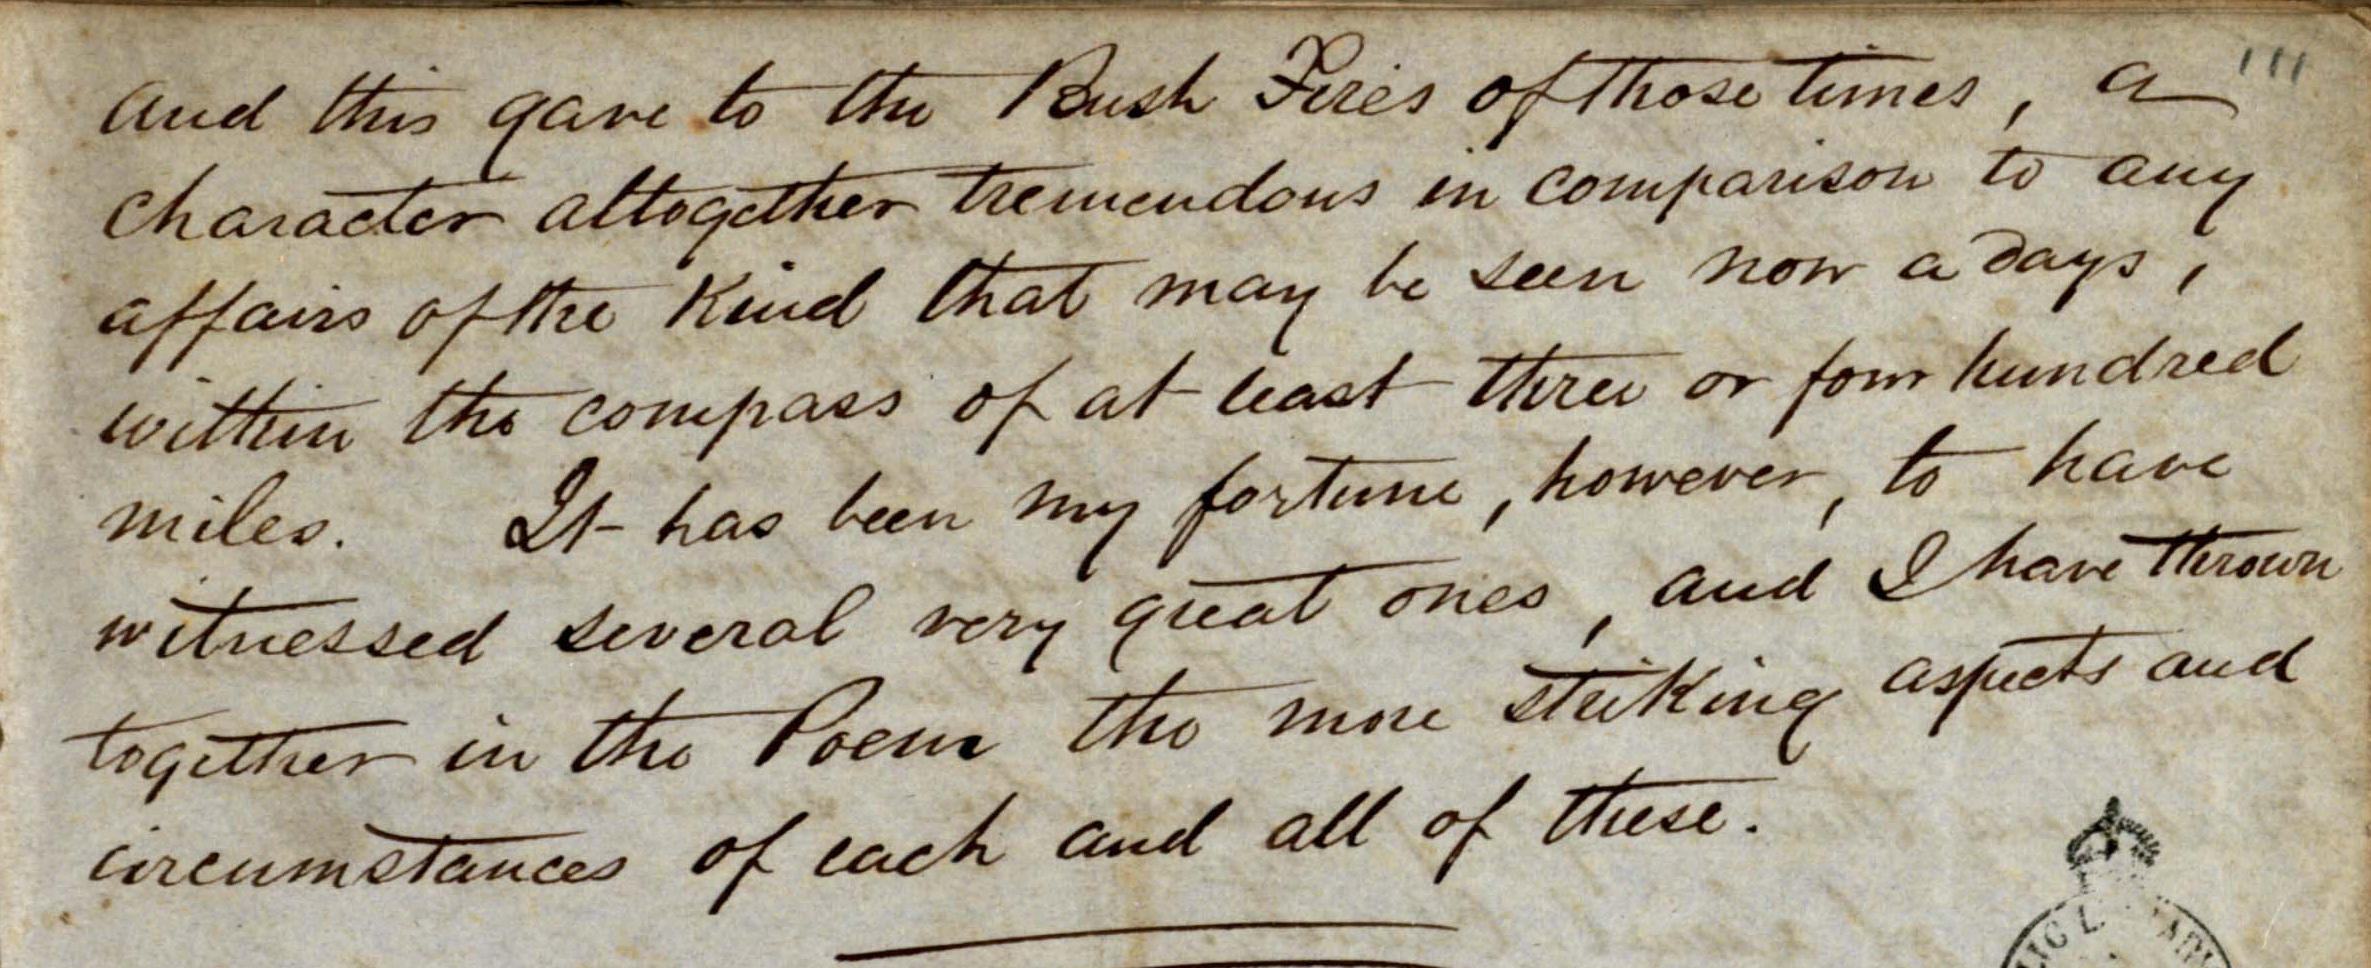 111
and this gave to the Bush Fires of those times, a
character altogether tremendous in comparison to any
affairs of the Kind that may be seen now a days,
within the compass of at least three or four hundred
miles. It has been my fortune, however, to have
witnessed several very great ones, and I have thrown
together in the Poem the more striking aspects and
circumstances of each and all of these.